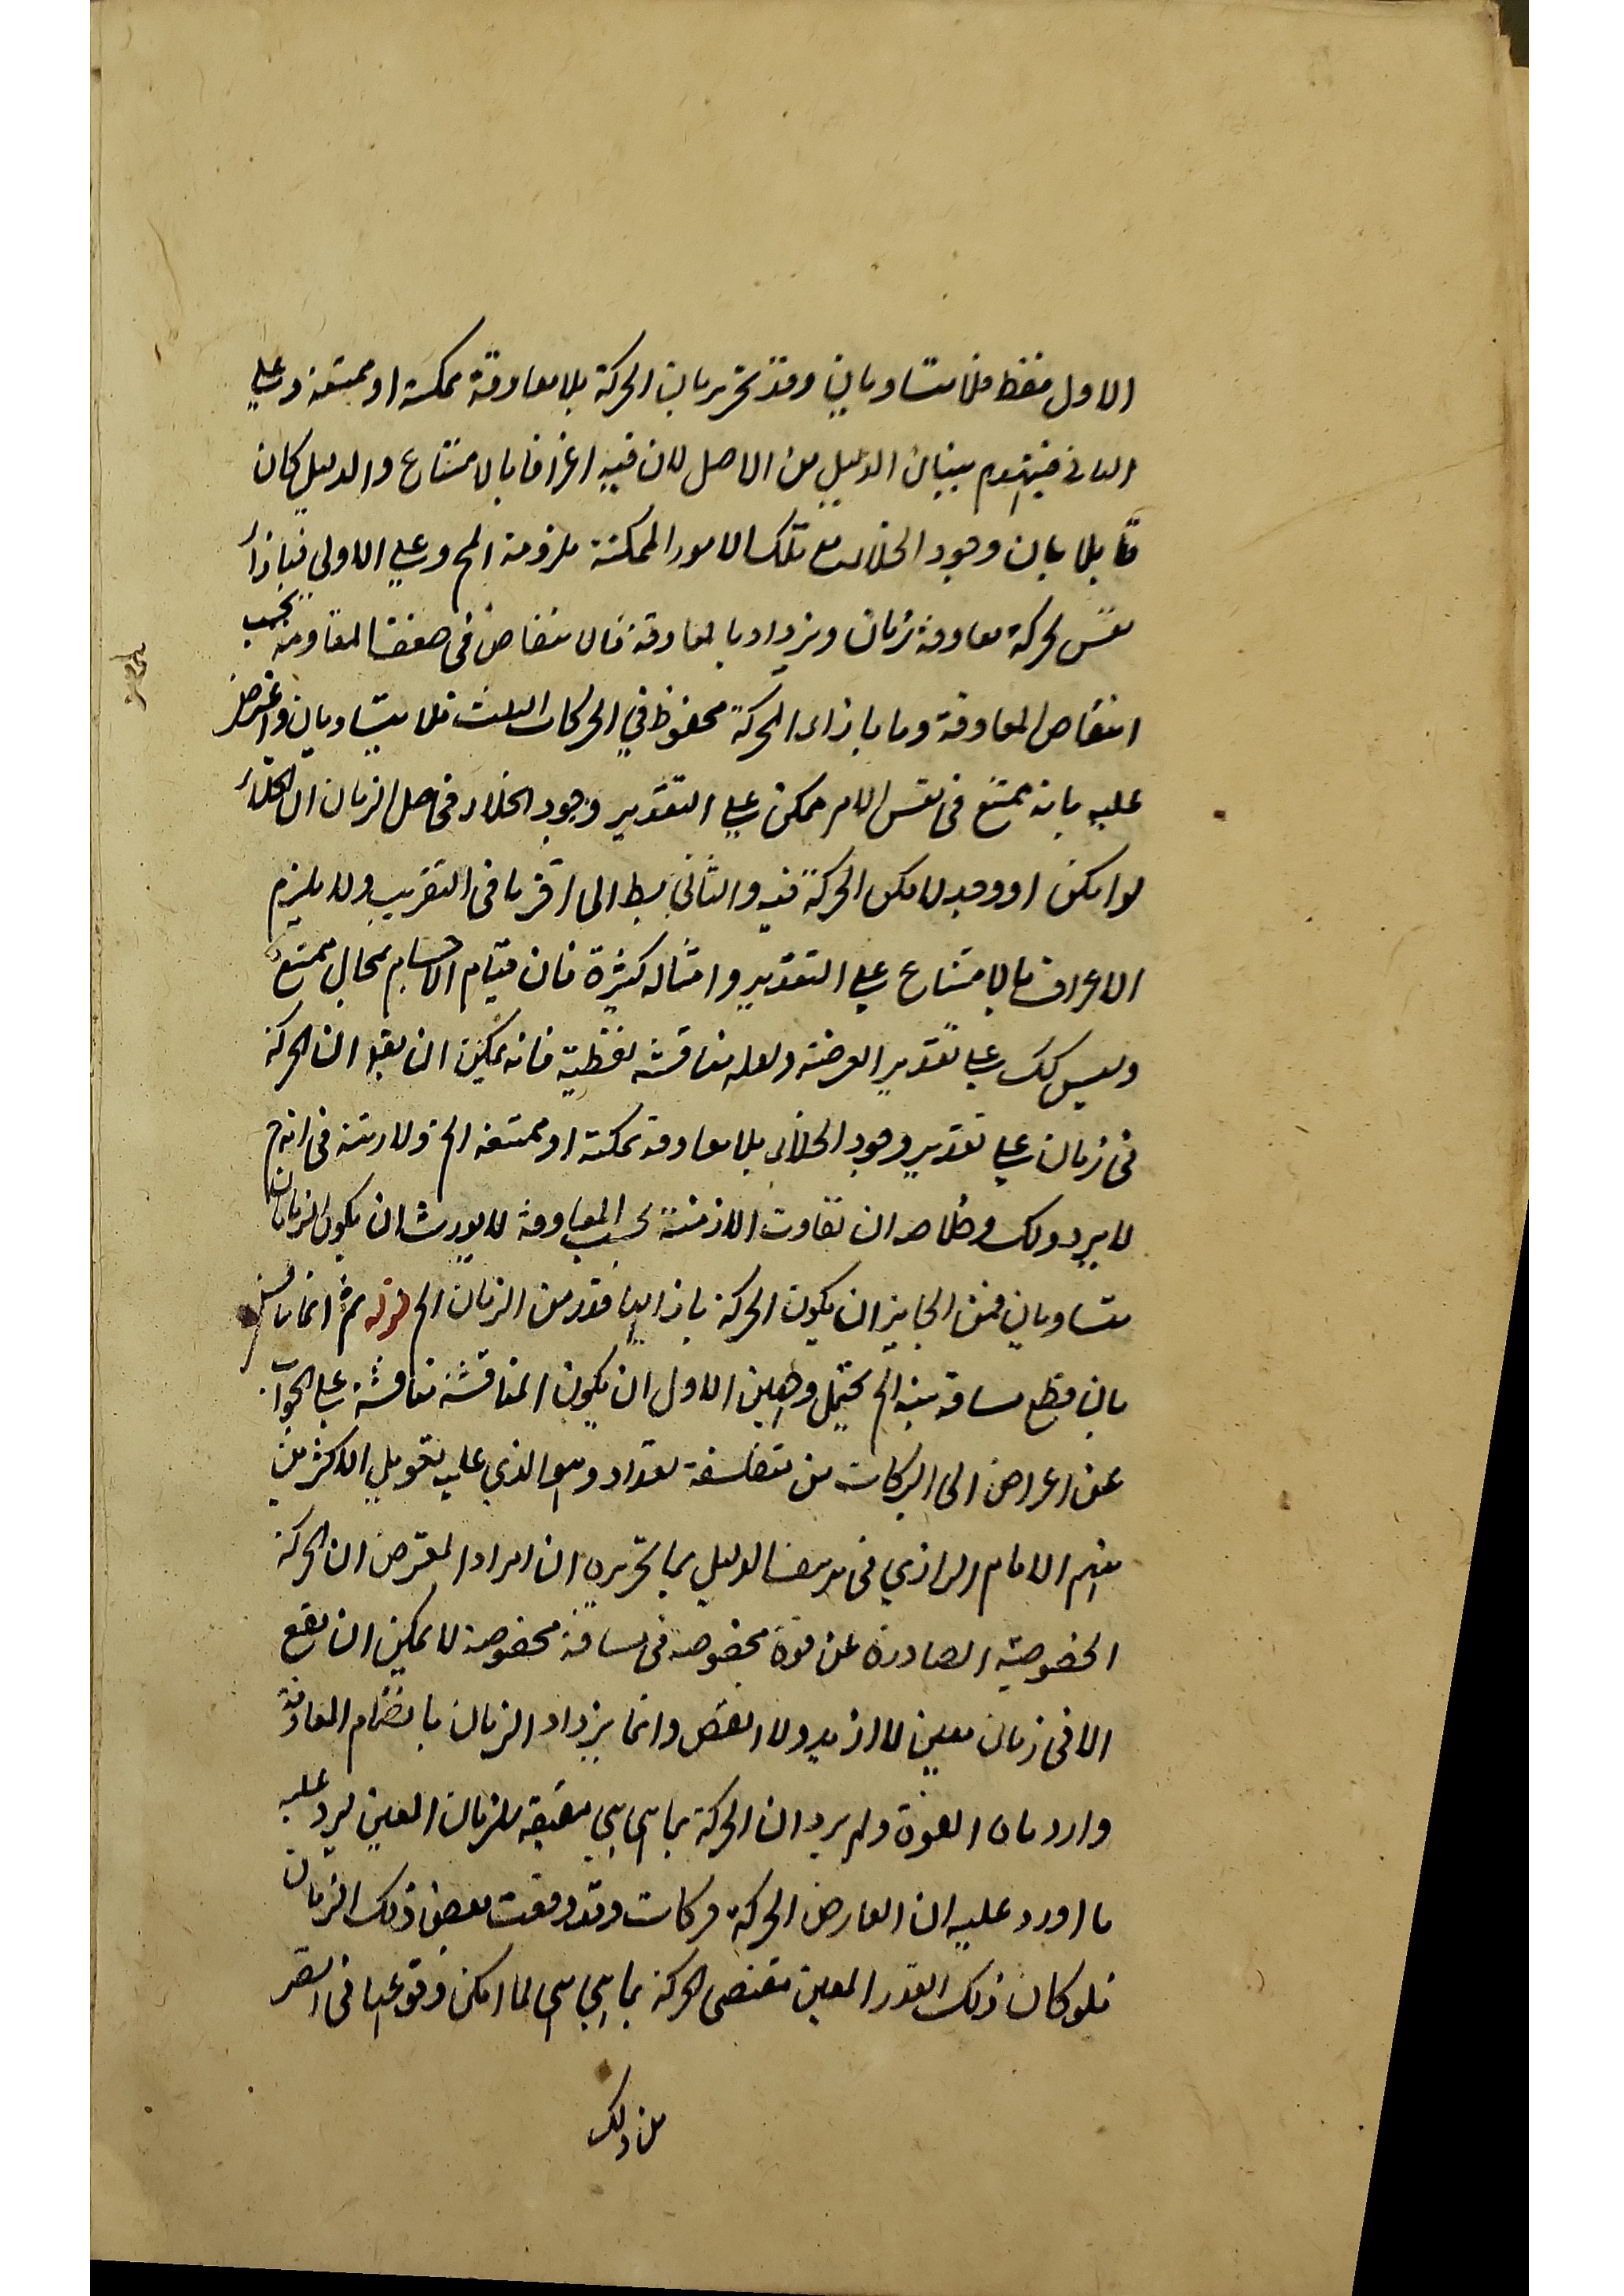 الاول فقط فلا متساويان وقد تحرر بان الحركة بلا معاوقة ممكنة او ممتنعة وعلى
الثانى فينهدم بنيان الدليل من الاصل لان فيه اعترافا بالامتناع والدليل كان
قايلا بان وجود الخلاء مع تلك الامور الممكنة ملزومة المح وعلى الاولى فبازاء
نفس الحركة معاوقة زمان ويزداد بالمعاوقة فالانتقاص فى ضعف المقاومة بحسب
انتقاص المعاوقة وما بازاء الحركة محفوظ في الحركات الثلث فلا يتساويان واعترض
عليه بانه ممتنع فى نفس الامر ممكن على التقدير وجود الخلاء فى اصل الزمان ان الخلاء
لو امكن او وجد لامكن الحركة فيه والثانى بط الى اقربا فى التقريب ولا يلزم
الاعراف بالامتناع على التقدير وامثاله كثيرة فان قيام الاجسام بمحال ممتنع
وليس كك على تقدير العرضية ولعله مناقشة لفظية فانه يمكن ان يقو ان الحركة
فى زمان على تقدير وجود الخلاء بلا معاوقة ممكنة او ممتنعة الخ ولا ريبة فى انه ح
لا يرد ذلك وظاهر ان تفاوت الازمنة بحسب المعاوقة لا يورث ان يكون الزمانان
متساويان فمن الجايز ان يكون الحركة بازائها قدر من الزمان الخ قوله ثم انما يناقش
بان قطع مسافة بينة الخ يحتمل وجهين الاول ان يكون المناقشة مناقشة على الجواب
عن اعراض ابى البركات من متفلسفة بغداد وهو الذي عليه تعويل الاكثرين
منهم الامام الرازي فى تزييف الدليل بما تحريره ان مراد المعترض ان الحركة
الخصوصية الصادرة عن قوة مخصوصة فى مسافة مخصوصة لا يمكن ان يقع
الا فى زمان معين لا ازيد ولا انقص وانما يزداد الزمان بانضمام المعاوقة
وارد مان القوة ولم يرد ان الحركة بما هى هي مقتضية للزمان المعين ليرد عليه
ما اورد عليه ان العارض الحركة حركات وقد وقعت بعض ذلك الزمان
فلو كان ذلك القدر المعين مقتضى الحركة بما هي هى لما امكن وقوعها فى اقصر
من ذلك